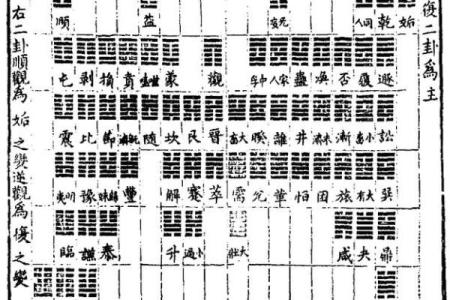 復二卦爲主
姤 乾 同人 无妄 益 頤
遯 履 否 渙 蠱 家人 中孚 觀 蒙 噬嗑 賁 損 剝 屯
訟 小畜 漸 未濟 井 離 睽 大畜 晉 艮 坎 随 既濟 節 比 震
巽 大有 旅 恒 困 革 兌 需 萃 蹇 解 豐 歸妹 豫 明夷
鼎 夬 咸 大壯 小過 升 泰 謙 臨
右二卦順觀爲姤之變逆觀爲復之變